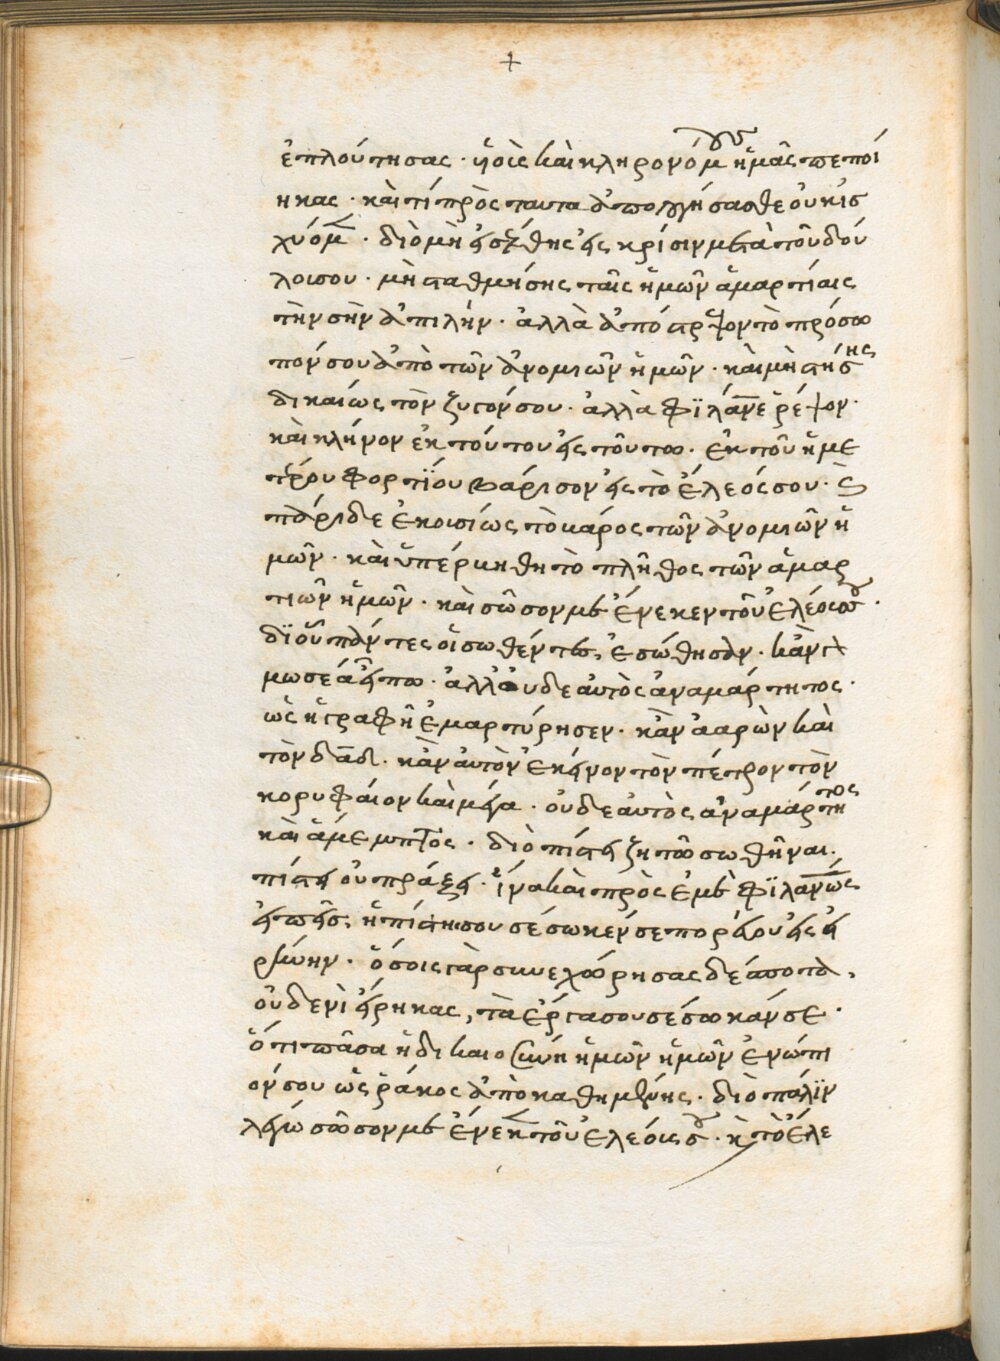 +
ἐπλούτησας · ἧοὶς καὶ κληρονόμους ἡμᾶς πεποί
ηκας · καὶ τί πρὸς ταυτα ἀπολογήσασθε οὐκ ἰσ
χύομεν · διὸ μὴ εἰσέλθης εἰς κρίσιν μετὰ τοῦ δού
λοι σου · μὴ σταθμήσης ταῖς ἡμῶν ἁμαρτίαις
τὴν σὴν ἀπιλήν · ἀλλὰ ἀπόστρεψον τὸ πρόσω
πόν σου ἀπὸ τῶν ἀνομιῶν ἡμῶν · καὶ μὴ στήσης
δικαίως τὸν ζυγόν σου · ἀλλα φϊλάνε ῥέψον ·
καὶ κλῆνον ἐκ τούτου εἰς τοῦτω · ἐκ τοῦ ἡμε
τέρου φορτΐου βάρισον εἰς τὸ ἔλεός σου ·
πάριδε ἑκοισίως τὸ κάρος τῶν ἀνομιῶν ἡ
μῶν · καὶ ὑπέρκηθη τὸ πλῆθος τῶν ἁμαρ
τιῶν ἡμῶν · καὶ σῶσον με ἕνεκεν τοῦ ἐλέοις σου ·
δϊοῦ πάντες οἱ σωθέντες, ἐσώθησαν · κἂν
μωσέα εἴπω · ἀλλ οὐδε αὐτὸς ἀναμάρτητος ·
ὡς ἡ γραφῆ ἐμαρτύρησεν · κἂν ἀαρὼν καὶ
τὸν δαδ · κἂν αὐτὸν ἐκεῖνον τὸν πέτρον τὸν
κορυφαίον καὶ μέγα · οὐδε αὐτὸς ἀναμάρτητος
καὶ ἄμεμπτος · διὸ πίστει ζητῶ σωθῆναι.
πίστει οὐ πράξει · ἵνα καὶ πρὸς ἐμὲ φϊλανως
εἴπεις, ἡ πίστη σου σέσωκέν σε πορεύου εἰς εἰ
ρήνην · ὅσοις γὰρ συνεχώρησας δέσποτα,
οὐδενὶ εἴρηκας, τὰ ἔργα σου σέσωκάν σε ·
ὅτι πᾶσα ἡ δικαιοσύνη ἡμῶν ἡμῶν ἐνώπι
όν σου ὡς ῥάκος ἀποκαθημένης · διὸ πάλϊν
λέγω σῶσον με ἕνεκεν τοῦ ἐλέοις σου · κ τὸ ἔλε